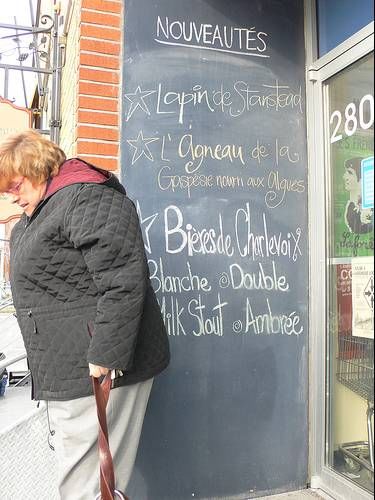 NOUVEAUTÉS
☆ Lapin de Stanstead
☆ L'Agneau de la
Gaspésie nourri aux Algues
☆ Bières de Charlevoix
Blanche Double
Milk Stout Ambrée
280